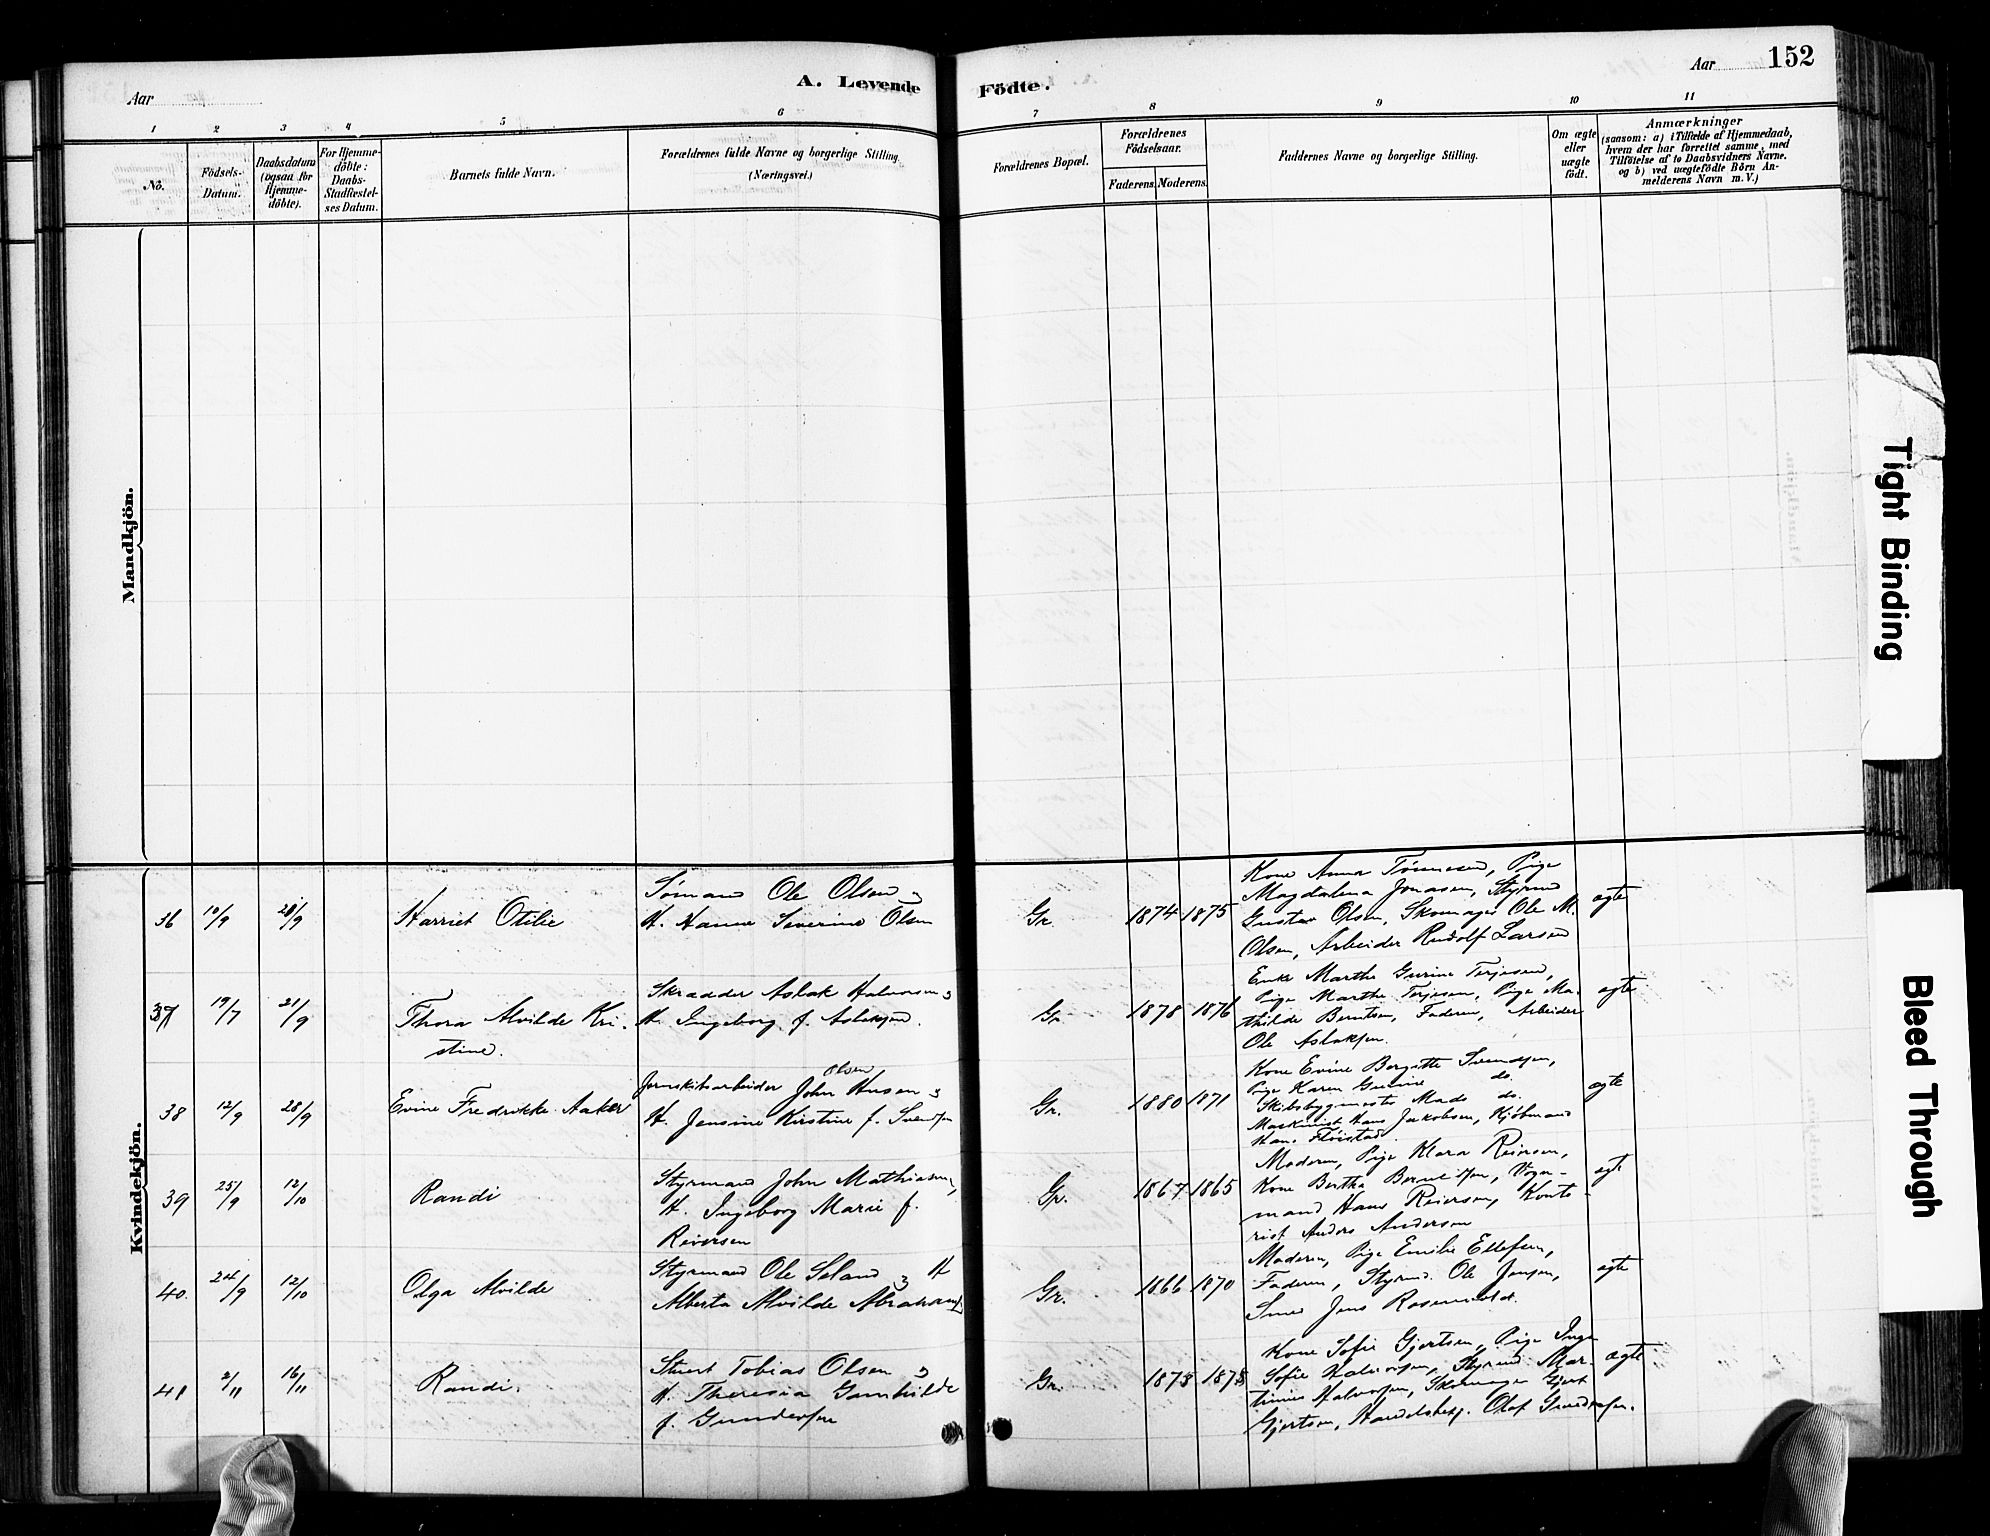 152
Aar
A. Levende
Födte.
Aar
1 2 3 4 5 6 7 8 9 10 11
No.
Födsels-
Datum.
Daabsdatum
(ogsaa for
Hjemme-
döbte).
For Hjemme-
döbte:
Daabs-
Stadfæstel-
ses Datum.
Barnets fulde Navn.
Forældrenes fulde Navne og borgerlige Stilling.
(Næringsvei.)
Forældrenes Bopæl.
Forældrenes
Födselsaar.
Faderens. Moderens.
Faddernes Navne og borgerlige Stilling.
Om ægte
eller
uægte
födt.
Anmærkninger
(saasom: a) i Tilfælde af Hjemmedaab,
hvem der har forrettet samme, med
Tilföielse af to Daabsvidners Navne.
og b) ved uægtefödte Börn An-
melderens Navn m.V.)
Mandkjön.
Kvindekjön.
36
28/9
Harriet Otilie
Sømand Ole Olsen og
H. Hanna Severine Olsen
Gr.
1874 1875
Kone Anna Tønnesen, Pige
Magdalena Jonasen, Styrmd
Gustav Olsen, Skomager Ole M.
Olsen, Arbeider Rudolf Larsen
ægte
37
19/7
21/9
Thora Alvilde Kri-
stine.
Skrædder Aslak Halvorsen og
H. Ingeborg f. Aslaksen.
Gr.
1878 1876
Enke Marthe Gurine Terjesen,
Pige Marthe Terjesen, Pige Ma-
thilde Berntsen, Faderen, Arbeider
Ole Aslaksen.
ægte
38
12/9
28/9
Evine Fredrikke Aaker
Olsen
Jernskibsarbeider John
H. Jensine Kirstine f. Svendsen
Gr.
1880 1871
Kone Evine Bergitte Svendsen,
Pige Karen Gurine do.
Skibsbygmester Mads do.
Maskinist Hans Jakobsen, Kjøbmand
Han. Fløistad.
ægte
39
25/9
12/10
Randi
Styrmand John Mathiasen,
H. Ingeborg Marie f.
Reiersen
Gr.
1867 1865
Moderen, Pige Klara Reiersen,
Kone Bertha Berntsen, Vogn-
mand Hans Reiersen, Konto-
rist Anders Andersen
ægte
40.
24/9
12/10
Olga Alvilde
Styrmand Ole Seland og H
Alberta Alvilde
Gr.
1866 1870
Moderen, Pige Emilie Ellefsen,
Faderen, Styrmd. Ole Jensen,
Smed Jens
ægte
41
2/11
16/11
Randi.
Stuert Tobias Olsen og
H. Theresia Gunhilde
f. Gundersen
Gr.
1873 1875
Kone Sofie Gjertsen, Pige Inga
Sofie Halvorsen, Styrmd. Mar-
tinius Halvorsen, Skomager Gjert
Gjertsen, Handelsbetj. Olaf Gundersen.
ægte
Tight Binding
Bleed Through